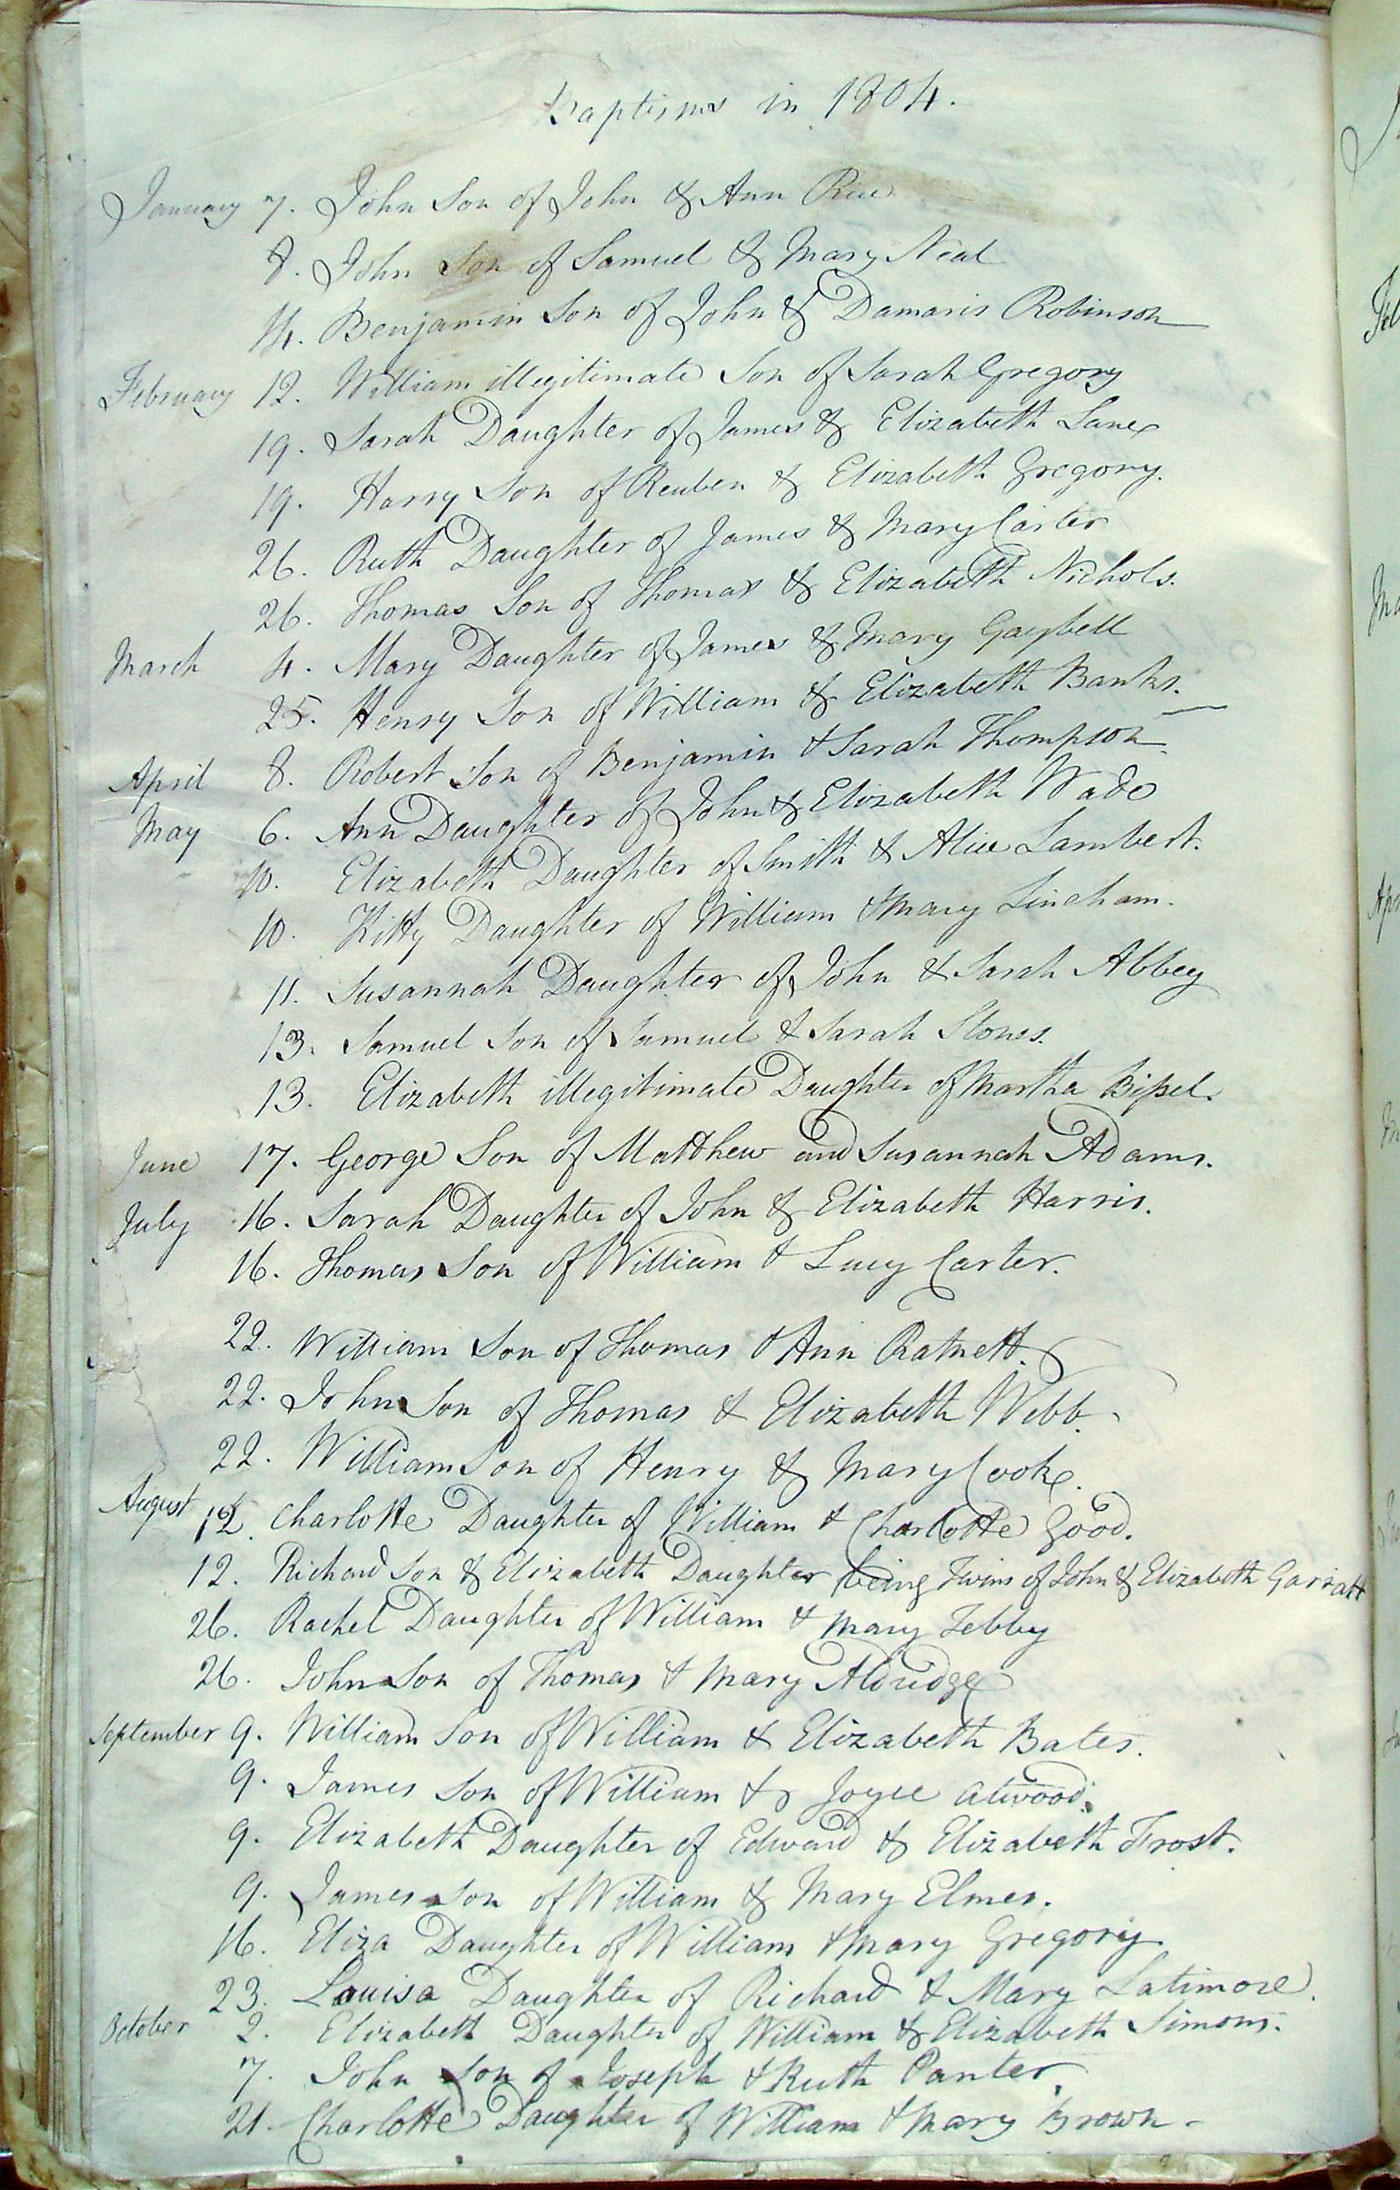 Baptisms in 1804.
January 7. John Son of John & Ann Rice
8. John Son of Samuel & Mary Neal
14. Benjamin Son of John & Damaris Robinson
February 12. William illegitimate Son of Sarah Gregory
19. Sarah Daughter of James & Elizabeth Lane
19. Harry Son of Reuben & Elizabeth Gregory.
26. Ruth Daughter of James & Mary Carter
26. Thomas Son of Thomas & Elizabeth Nichols.
March 4. Mary Daughter of James & Mary Gaybell
25. Henry Son of William & Elizabeth Banks.
April 8. Robert Son of Benjamin & Sarah Thompson.
May 6. Ann Daughter of John & Elizabeth Wade
10. Elizabeth Daughter of Smith & Alice Lambert.
10. Kitty Daughter of William & Mary Lineham.
11. Susannah Daughter of John & Sarah Abbey
13. Samuel Son of Samuel & Sarah Stones.
13. Elizabeth illegitimate Daughter of Martha Bissel.
June 17. George Son of Matthew and Susannah Adams.
July 16. Sarah Daughter of John & Elizabeth Harris.
16. Thomas Son of William & Lucy Carter.
22. William Son of Thomas & Ann Ratnett.
22. John Son of Thomas & Elizabeth Webb.
22. William Son of Henry & Mary Cooke.
August 12. Charlotte Daughter of William & Charlotte Good.
12. Richard Son & Elizabeth Daughter being Twins of John & Elizabeth Garratt
26. Rachel Daughter of William & Mary Tebby
26. John Son of Thomas & Mary Aldridge
September 9. William Son of William & Elizabeth Bates.
9. James Son of William & Joyce Atwood.
9. Elizabeth Daughter of Edward & Elizabeth Frost.
9. James Son of William & Mary Elmes.
16. Eliza Daughter of William & Mary Gregory
23. Louisa Daughter of Richard & Mary Latimore.
October 2. Elizabeth Daughter of William & Elizabeth Simons.
7. John Son of Joseph & Ruth Panter.
21. Charlotte Daughter of William & Mary Brown.